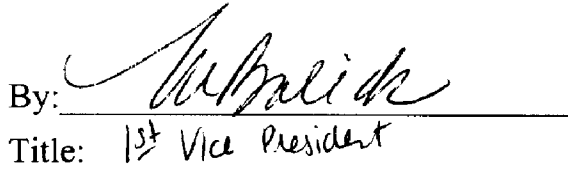 By:
Title: 1st Vice President